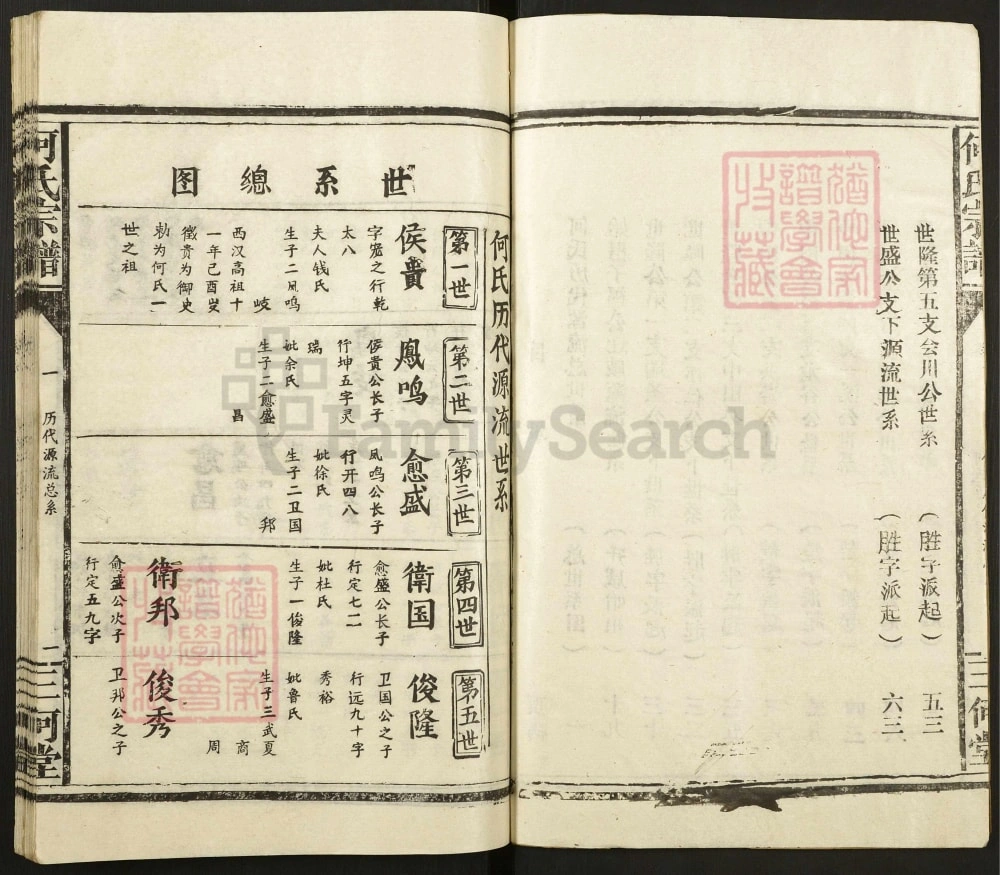 何氏宗譜
世隆第五支会川公世系 (胜字派起) 五三
世盛公支下源流世系 (胜字派起) 六三
三何堂
世系總图
何氏历代源流世系
第一世
侯貴
字宠之行乾
太八
夫人钱氏
生子二凤鸣
岐
西汉高祖十
一年己酉岁
徵贵为御史
勅为何氏一
世之祖
第二世
鳳鸣
侯贵公长子
行坤五字灵
瑞
妣余氏
生子二愈盛
昌
第三世
愈盛
凤鸣公长子
行开四八
妣徐氏
生子二卫国
邦
第四世
衛国
愈盛公长子
行定七二
妣杜氏
生子一俊隆
衛邦
愈盛公次子
行定五九字
第五世
俊隆
卫国公之子
行远九十字
秀裕
妣鲁氏
生子三武夏
商
周
俊秀
卫邦公之子
何氏宗譜
一
历代源流总系
一
三何堂
猶他家譜學會收藏
猶他家譜學會收藏
FamilySearch